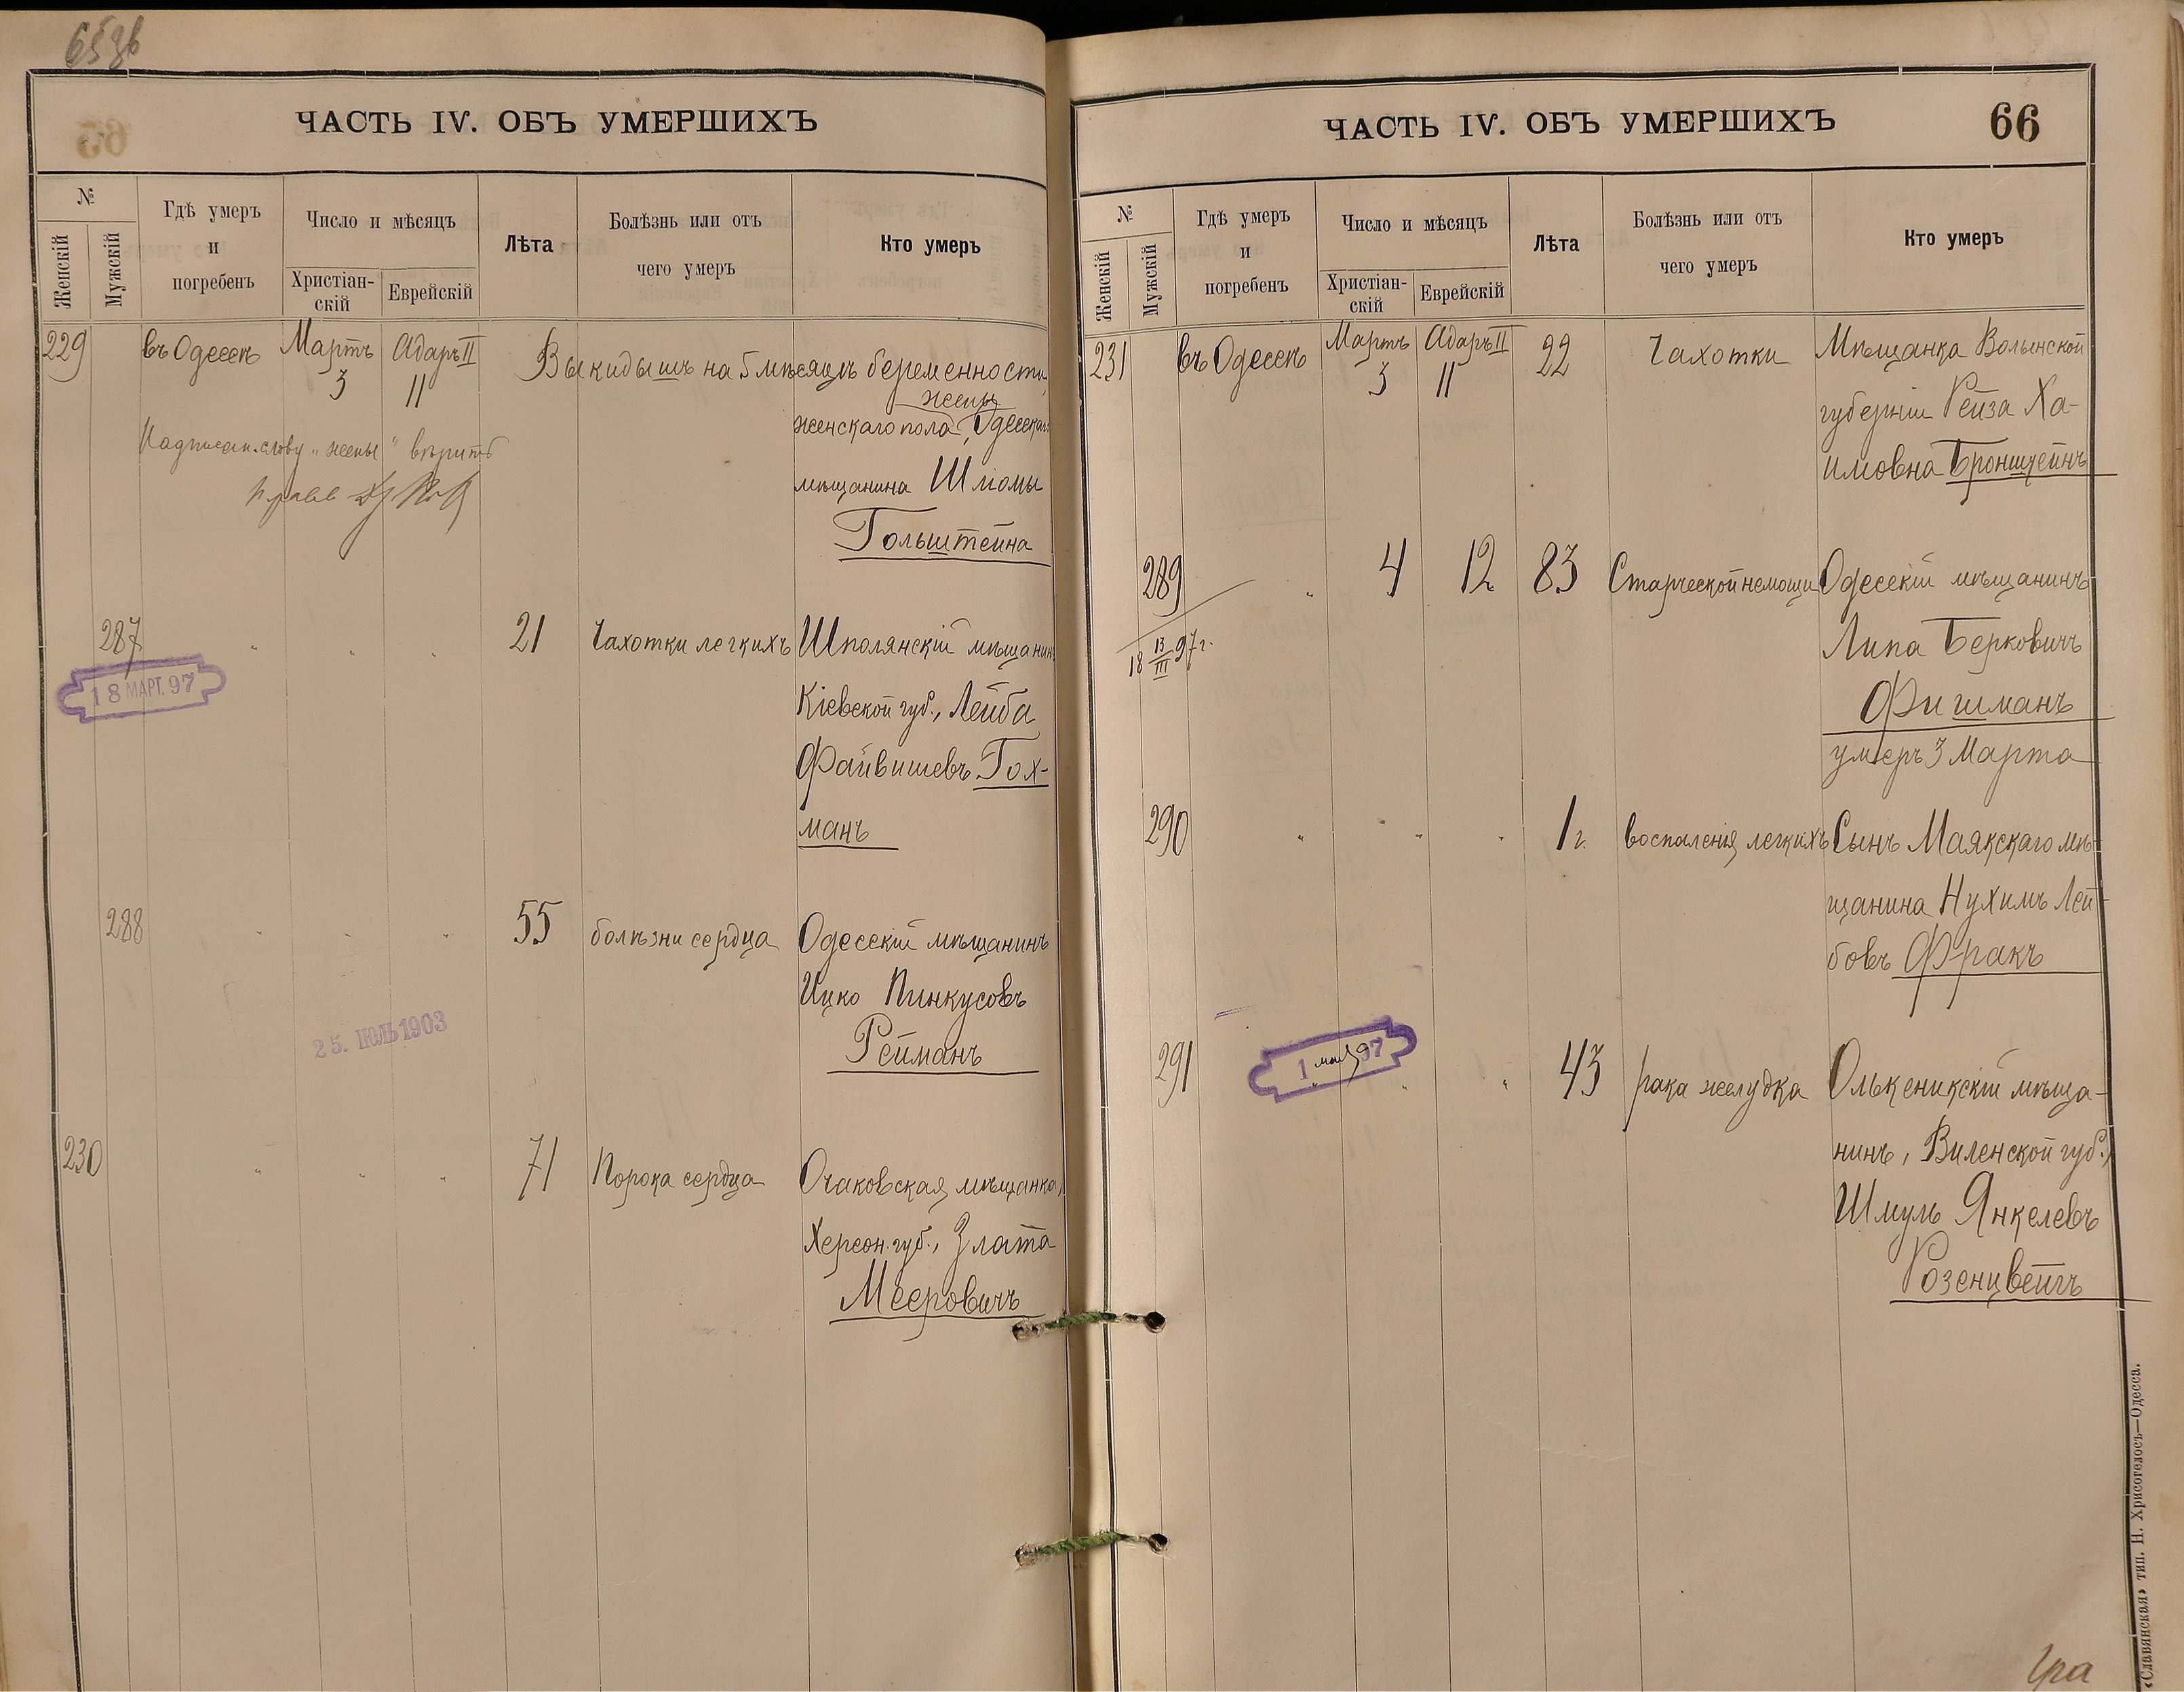 65 зв
ЧАСТЬ IV. ОБЪ УМЕРШИХЪ
№
Женскій
Мужскій
Гдѣ умеръ
и
погребенъ
Число и мѣсяцъ
Христіан-
скій
Еврейскій
Лѣта
Болѣзнь или отъ
чего умеръ
Кто умеръ
229 въ Одессѣ Мартъ Адаръ II Выкидышъ на 5 мѣсяцѣ беременности
3 11
жены
женскаго пола, Одесскаго
Надписан. слову „жены" вѣрить
мѣщанина Шліомы
Гольштейна
287 " " " 21 Чахотки легкихъ Шполянскій мѣщанинъ
18 МАРТ. 97
Кіевской губ., Лейба
Файвишевъ Гох-
манъ
288 " " " 55 болѣзни сердца Одесскій мѣщанинъ
Ицко Пинкусовъ
25. ІЮЛЬ 1903
Рейманъ
230 " " " 71 Порока сердца Очаковская мѣщанка,
Херсон. губ., Злата
Мееровичъ
ЧАСТЬ IV. ОБЪ УМЕРШИХЪ
66
№
Женскій
Мужскій
Гдѣ умеръ
и
погребенъ
Число и мѣсяцъ
Христіан-
скій
Еврейскій
Лѣта
Болѣзнь или отъ
чего умеръ
Кто умеръ
231 въ Одессѣ Мартъ Адаръ II 22 Чахотки Мѣщанка Волынской
3 11
губерніи Рейза Ха-
имовна Бронштейнъ
289 " 4 12 83 Старческой немощи Одесскій мѣщанинъ
18 13/III 97 г.
Липа Берковичъ
Фишманъ
умеръ 3 Марта
290 " " " 1 г. воспаленія легкихъ Сынъ Маякскаго мѣ-
щанина Нухимъ Лей-
бовъ Фракъ
291 " " " 43 рака желудка Олькеникскій мѣща-
1 мая 97
нинъ, Виленской губ.,
Шмуль Янкелевъ
Розенцвейгъ
«Славянская» тип. Н. Хрисогелосъ—Одесса.